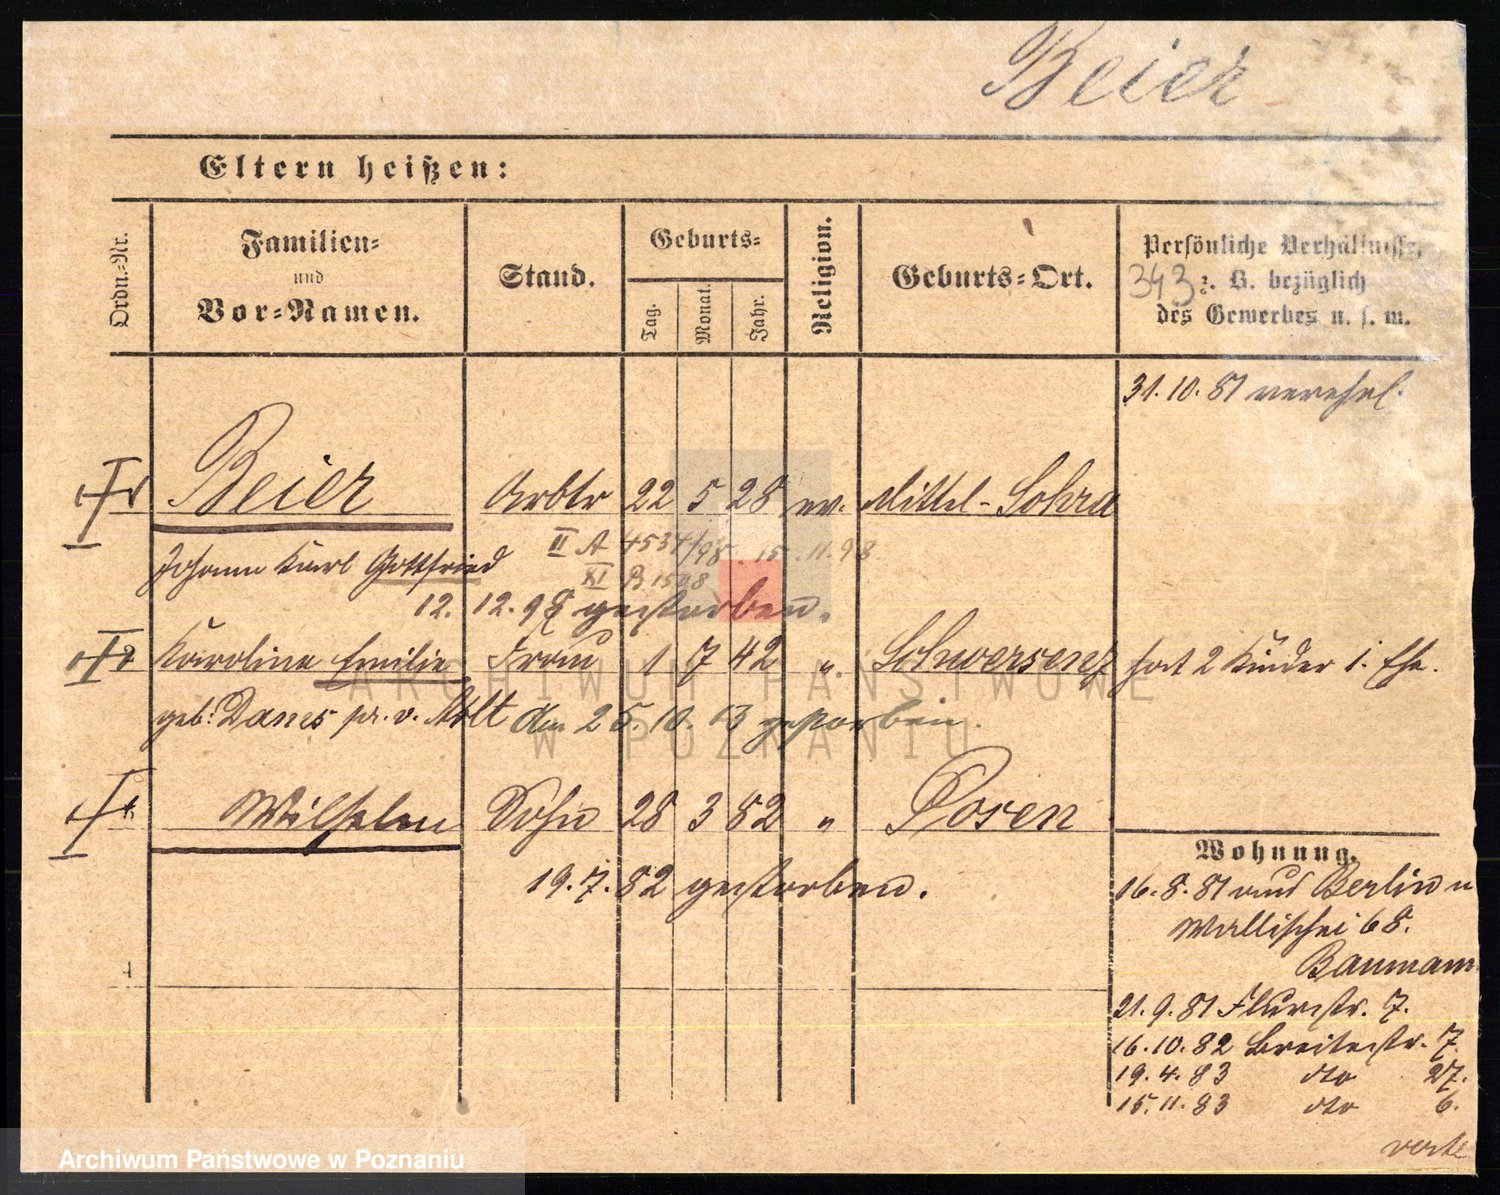 Beier
Eltern heißen:
Ordn.-Nr.
Familien-
und
Vor-Namen.
Stand.
Geburts-
Tag.
Monat.
Jahr.
Religion.
Geburts-Ort.
Persönliche Verhältnisse,
343 z. B. bezüglich
des Gewerbes u. s. w.
31.10.81 verehel.
Beier Arbtr 22 5 28 ev. Mittel-Sohra
Johann Karl Gottfried
II A 4534/98. 15.11.98
XI B
12.12.98 gestorben.
Karoline Emilie Frau 1 7 42 " Schwersenz hat 2 Kinder 1. Ehe.
geb: Dams pr. v. Nolt den 25.10.13 gestorben.
Wilhelm Sohn 28 3 82 " Posen
19.7.82 gestorben.
Wohnung.
16.8.81 aus Berlin n
Wallischei 68.
Baumann
21.9.81 Flurstr. 7.
16.10.82 Breitestr. 7.
19.4.83 dto 27.
15.11.83 dto 6.
verte
ARCHIWUM PAŃSTWOWE
W POZNANIU
Archiwum Państwowe w Poznaniu